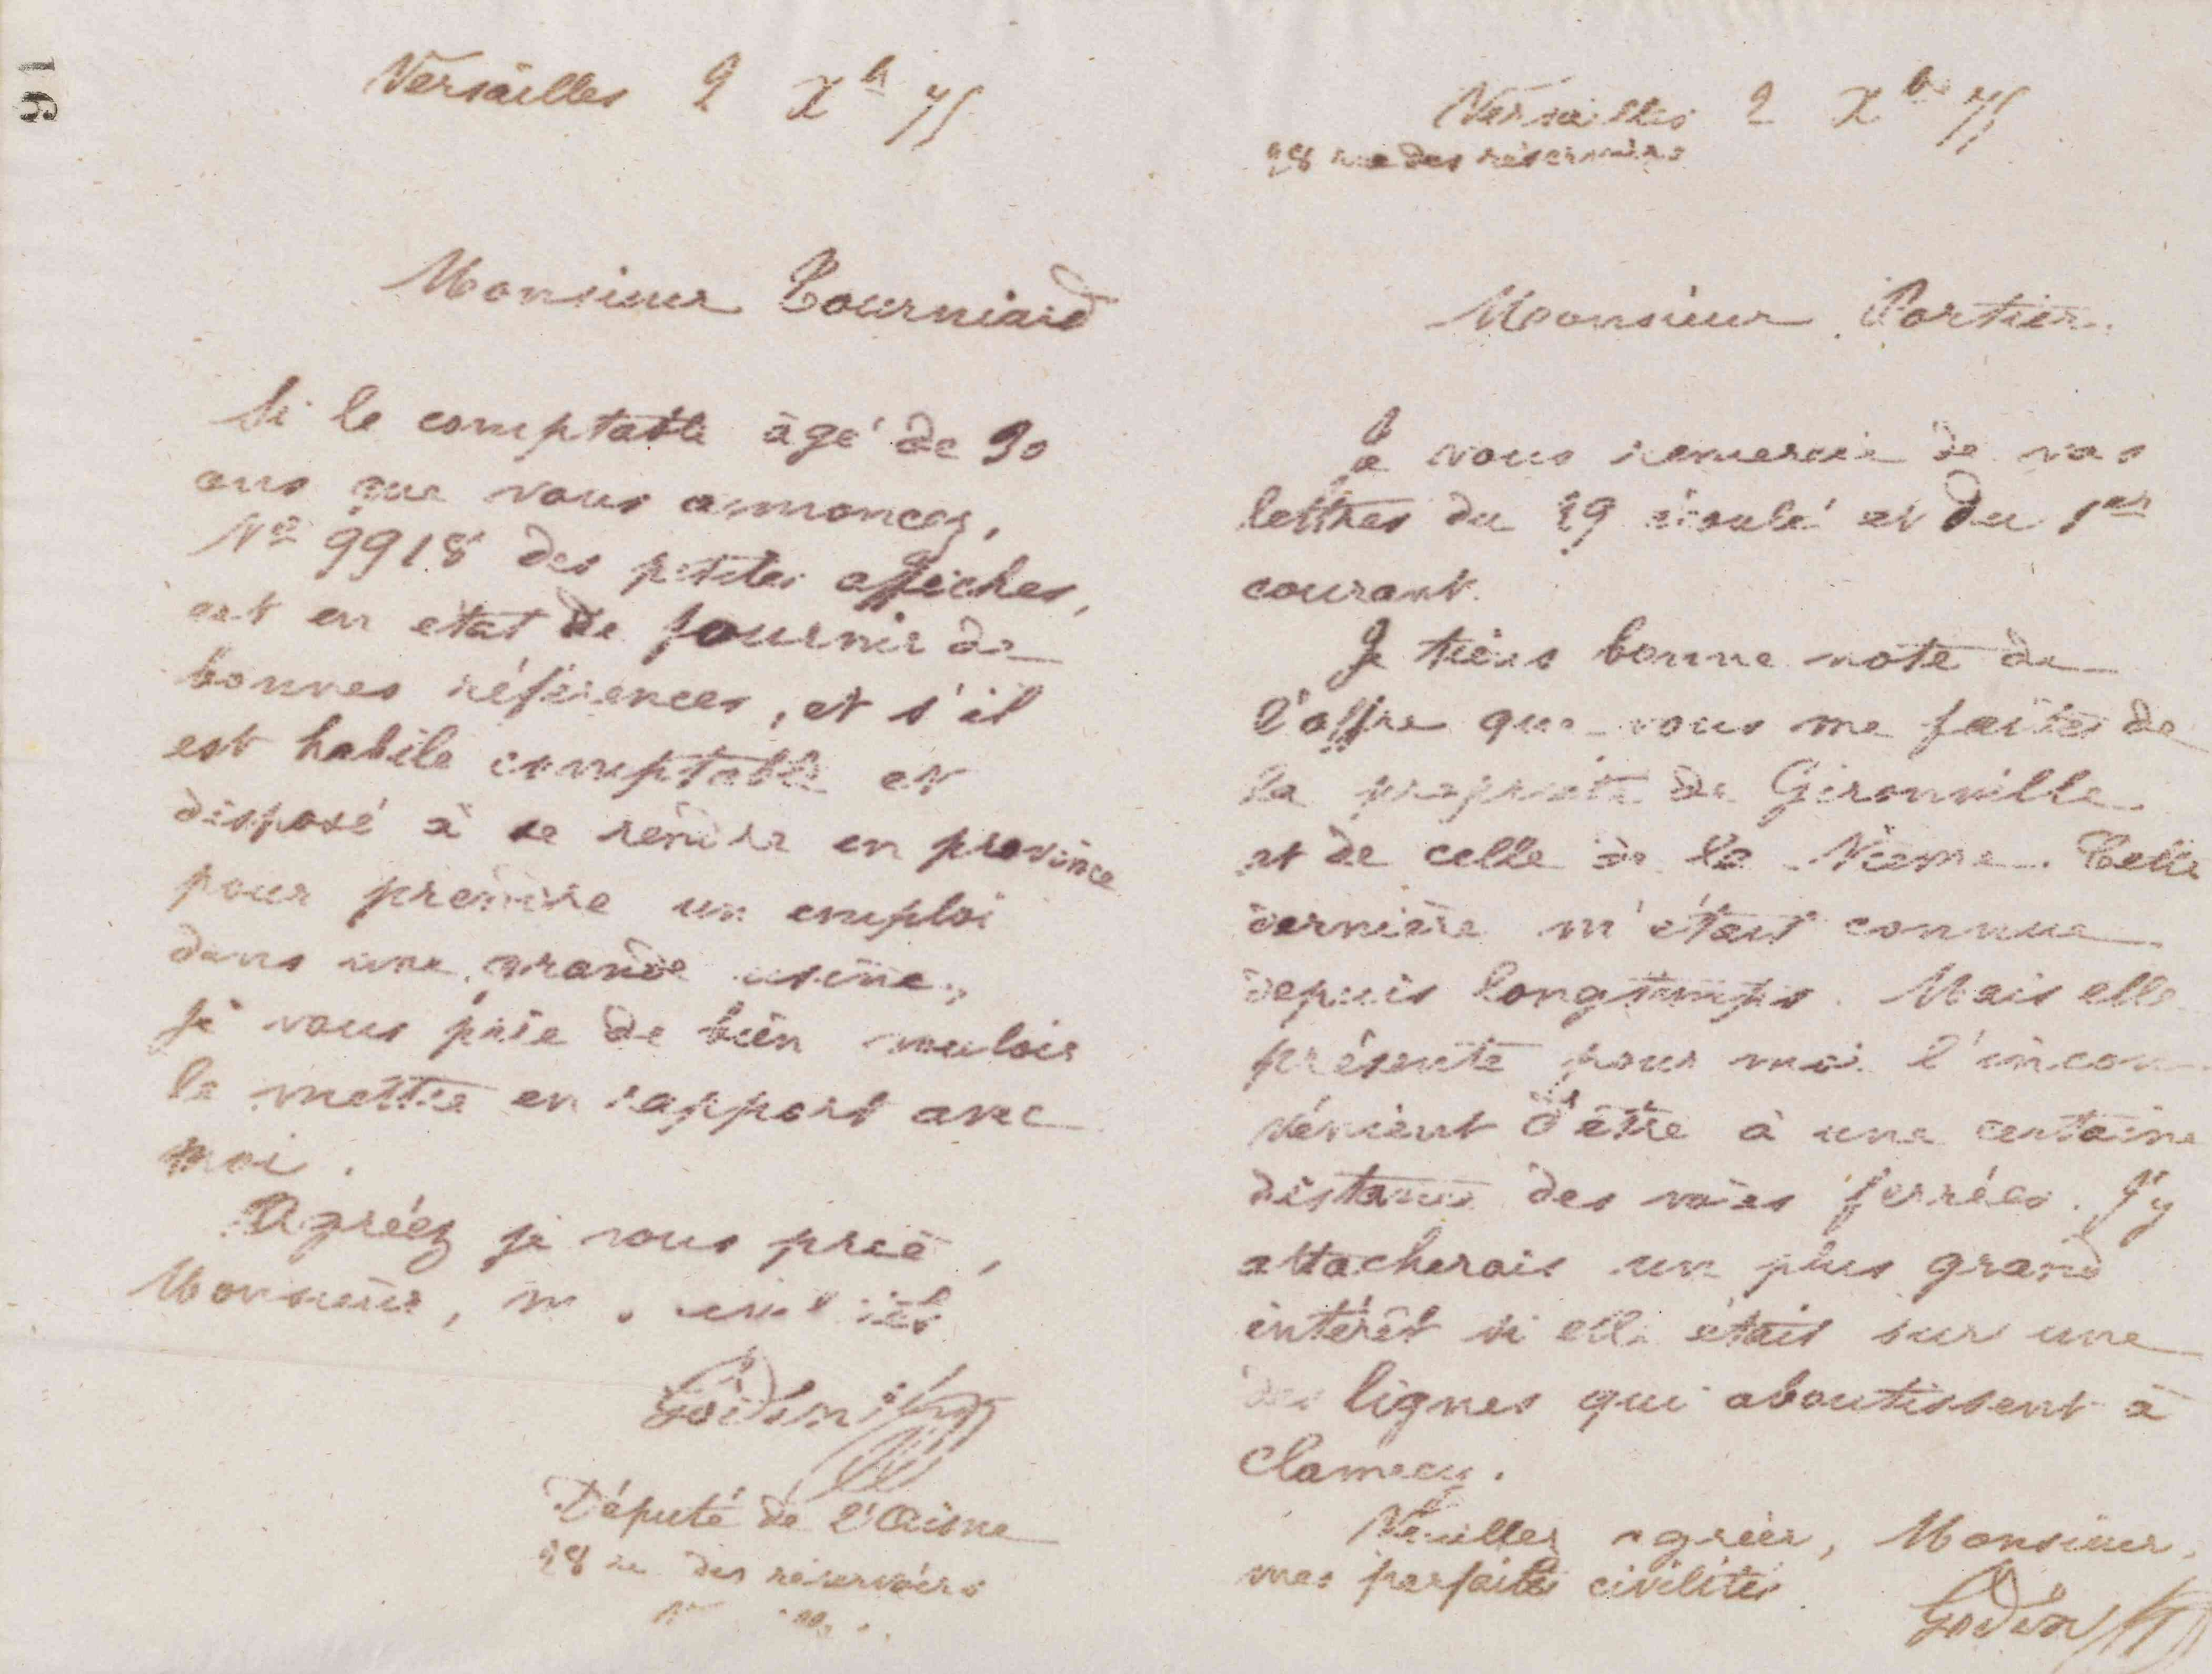 91
Versailles 2 Xb 75
Monsieur Tourniard
Si le comptable âgé de 30
ans que vous annoncez,
No 9918 des petites affiches,
est en état de fournir de
bonnes références, et s'il
est habile comptable et
disposé à se rendre en province
pour prendre un emploi
dans une grande usine,
je vous prie de bien vouloir
le mettre en rapport avec
moi.
Agréez je vous prie,
Monsieur, m civilités
Godin
Député de l'Aisne
28 rue des réservoirs
Versailles 2 Xbre 75
28 rue des réservoirs
Monsieur Portier
Je vous remercie de vos
lettres du 29 écoulé et du 1er
courant.
Je tiens bonne note de
l'offre que vous me faites de
la propriété de Gironville
et de celle de la Nièvre. Cette
dernière m'était connue
depuis longtemps. Mais elle
présente pour moi l'incon-
vénient d'être à une certaine
distance des voies ferrées. J'y
attacherais un plus grand
intérêt si elle était sur une
des lignes qui aboutissent à
Clamecy.
Veuillez agréer, Monsieur,
mes parfaites civilités
Godin